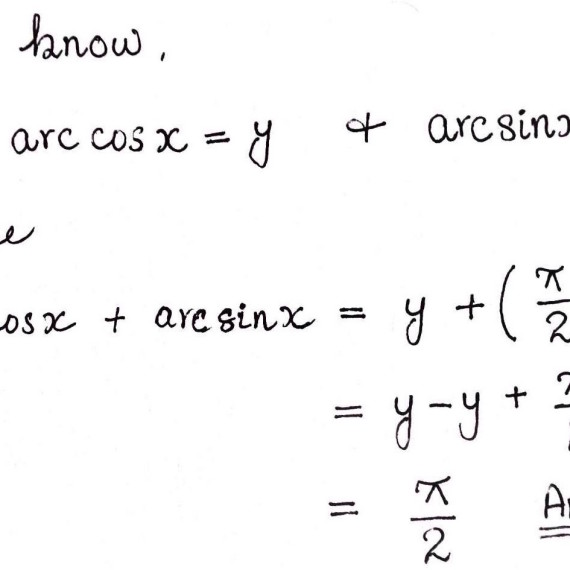 know,
arc cos x = y & arcsinx
osx + arcsinx = y + ( π/2
= y - y +
= π/2